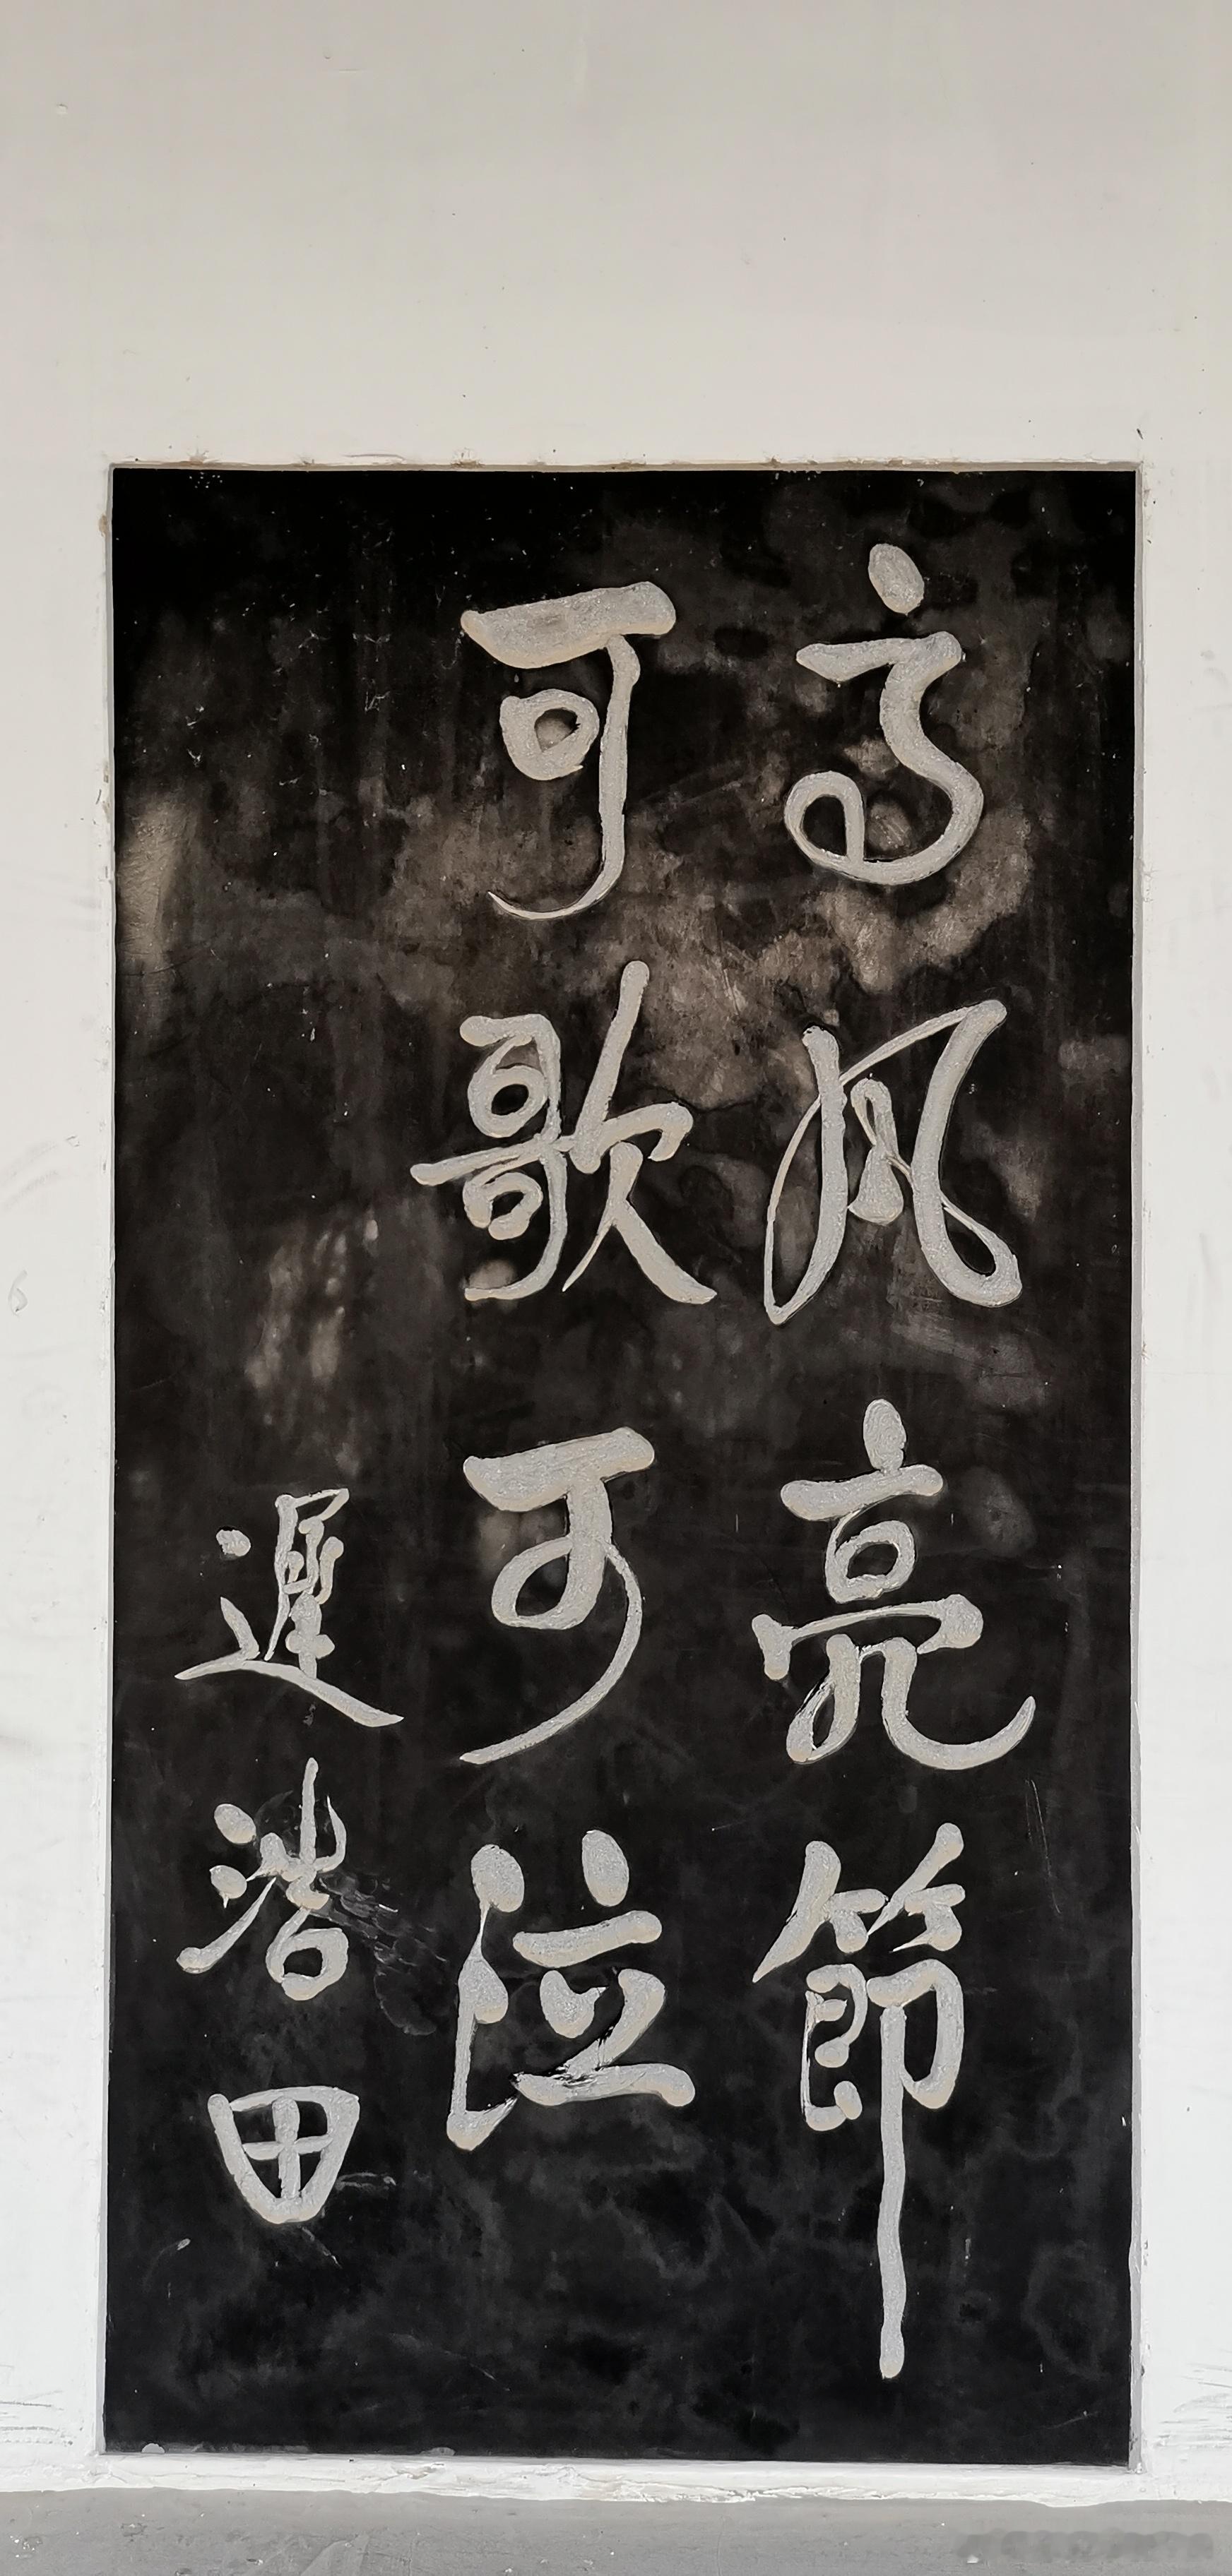 高风亮節
可歌可泣
遲浩田